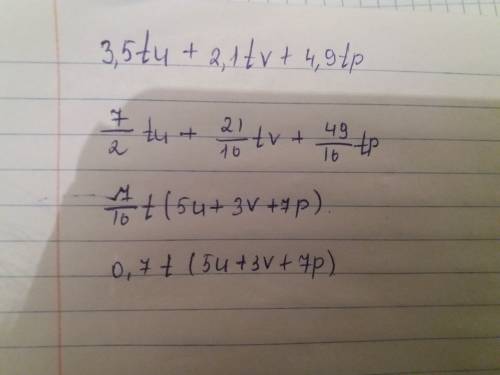 3,5tu + 2,1tv + 4,9tp
7/2 tu + 21/10 tv + 49/10 tp
7/10 t (5u + 3v + 7p).
0,7 t (5u + 3v + 7p)